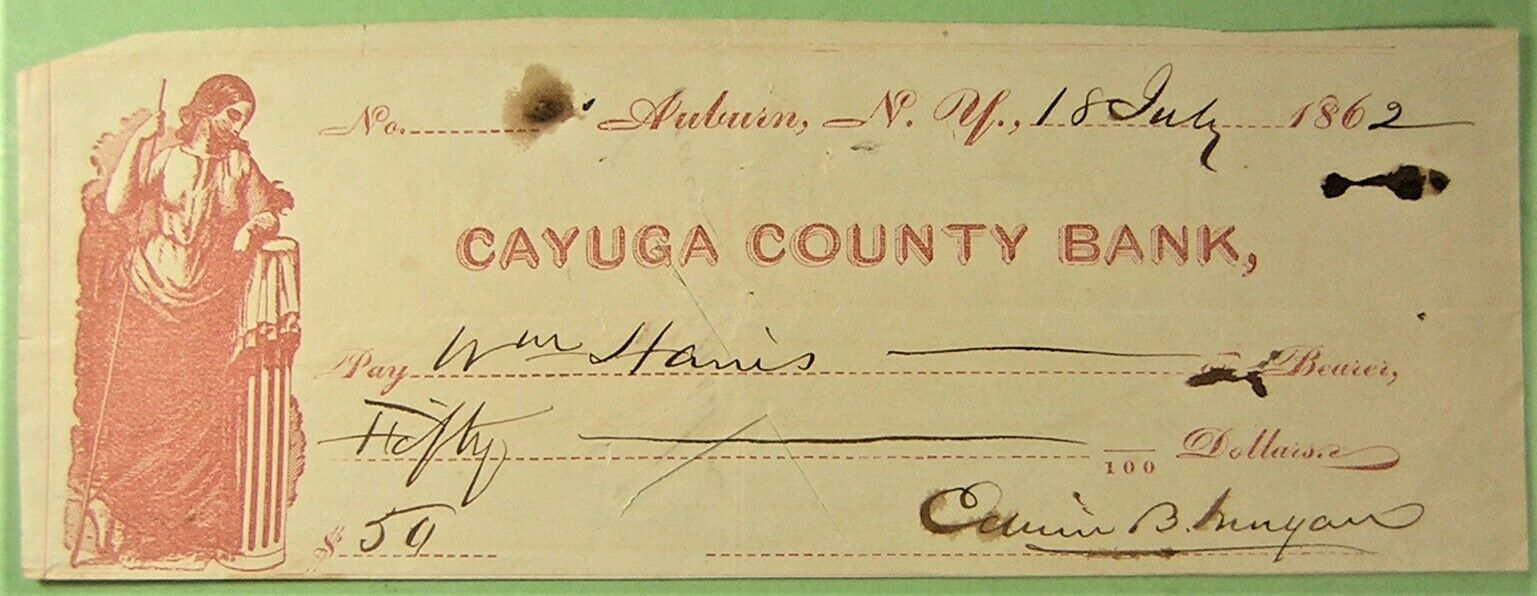 No. Auburn, N. Y., 18 July 1862
CAYUGA COUNTY BANK,
Pay Wm Harris or Bearer,
Fifty /100 Dollars.
$ 50
Edwin B. Morgan